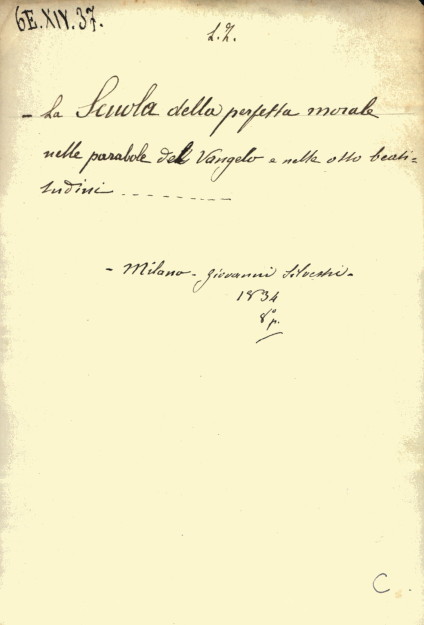 6E.XIV.37.
L.Z.
- La Scuola della perfetta morale
nelle parabole del Vangelo e nelle otto beati-
tudini ---------
- Milano - Giovanni Silvestri -
1834
8º p.
C.